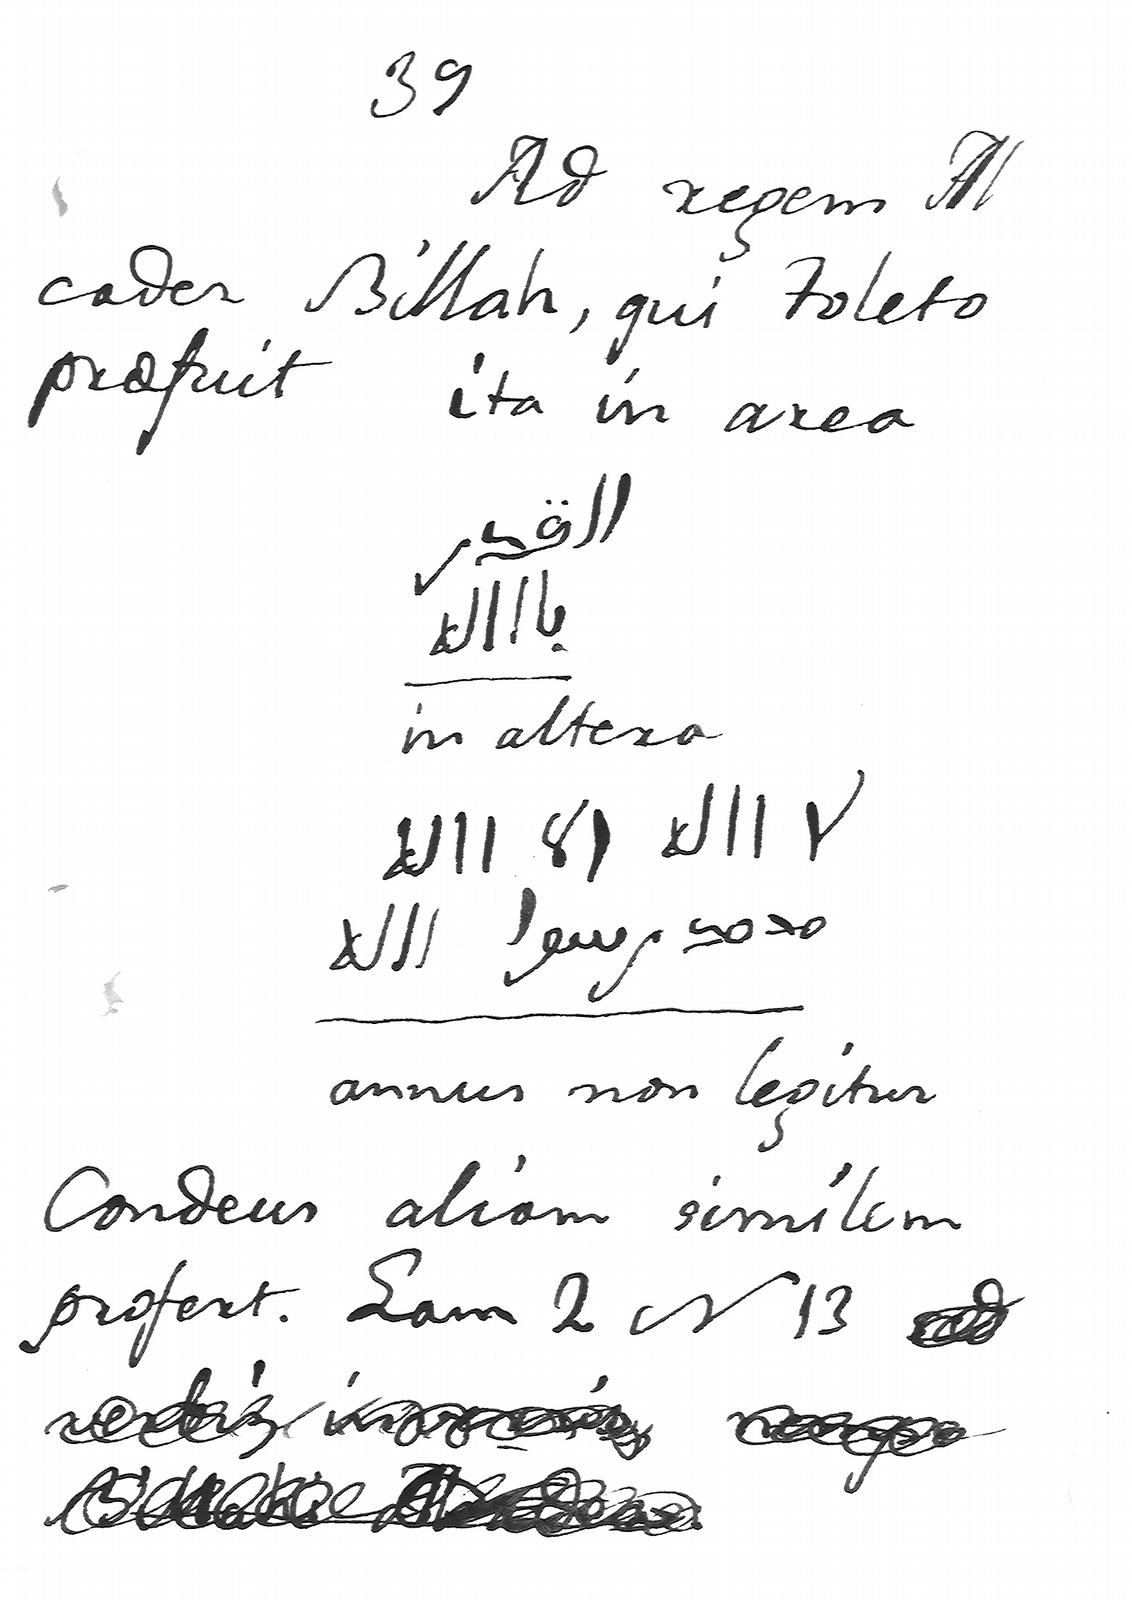 39
Ad regem Al
cader Billah, qui Toleto
præfuit ita in area
القدر
باالله
in altera
لا االله الا االله
محمد رسول االله
annus non legitur
Condeus aliam similem
profert. Lam 2 N 13